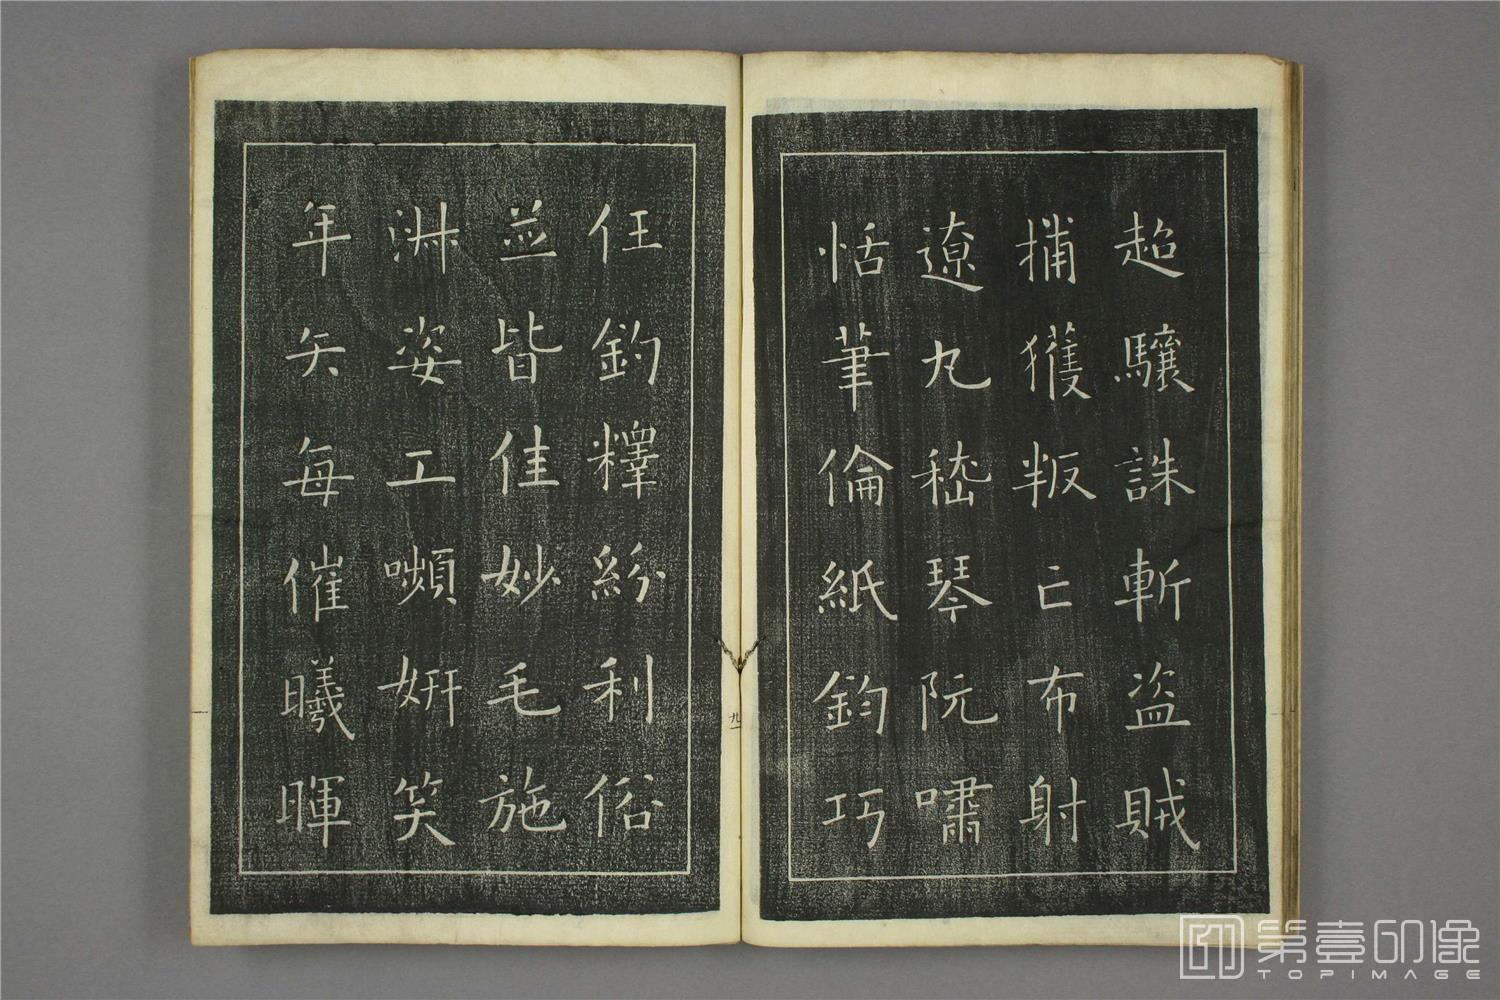 超驤誅斬盗賊
捕獲叛亡布射
遼丸嵇琴阮嘯
恬筆倫紙鈞巧
任釣釋紛利俗
並皆佳妙毛施
淋姿工嚬妍笑
年矢每催曦暉
九
第壹印像
TOPIMAGE